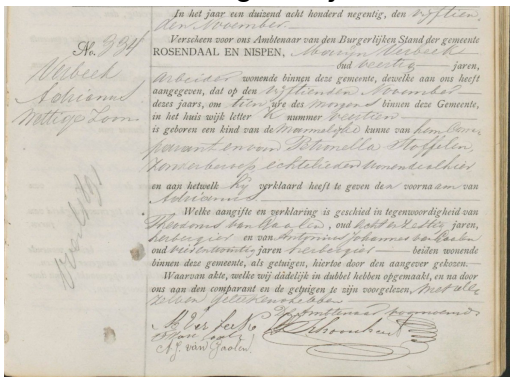 In het jaar een duizend acht honderd negentig, den vijftien-
den November
Verscheen voor ons Ambtenaar van den Burgerlijken Stand der gemeente
No. 334
ROSENDAAL EN NISPEN, Verbeek
oud veertig jaren,
Verbeek
Adrianus
arbeider wonende binnen deze gemeente, dewelke aan ons heeft
aangegeven, dat op den vijftienden November
dezes jaars, om tien ure des morgens binnen deze Gemeente,
in het huis wijk letter nummer veertien
is geboren een kind van de Mannelijke kunne van hem Com-
parant en van Petronella Stoffelen,
zonder beroep echtelieden wonende alhier
en aan hetwelk hij verklaard heeft te geven den voornaam van
Adrianus.
Welke aangifte en verklaring is geschied in tegenwoordigheid van
Theodorus van Gaalen, oud acht en zestig jaren,
herbergier en van Antonius Johannes van Gaalen
oud jaren herbergier beiden wonende
binnen deze gemeente, als getuigen, hiertoe door den aangever gekozen.
Waarvan akte, welke wij dadelijk in dubbel hebben opgemaakt, en na door
ons aan den comparant en de getuigen is zijn voorgelezen, met alle
zeven geteekend hebben
De Ambtenaar voornoemd
M Verbeek
A. J. van Gaalen